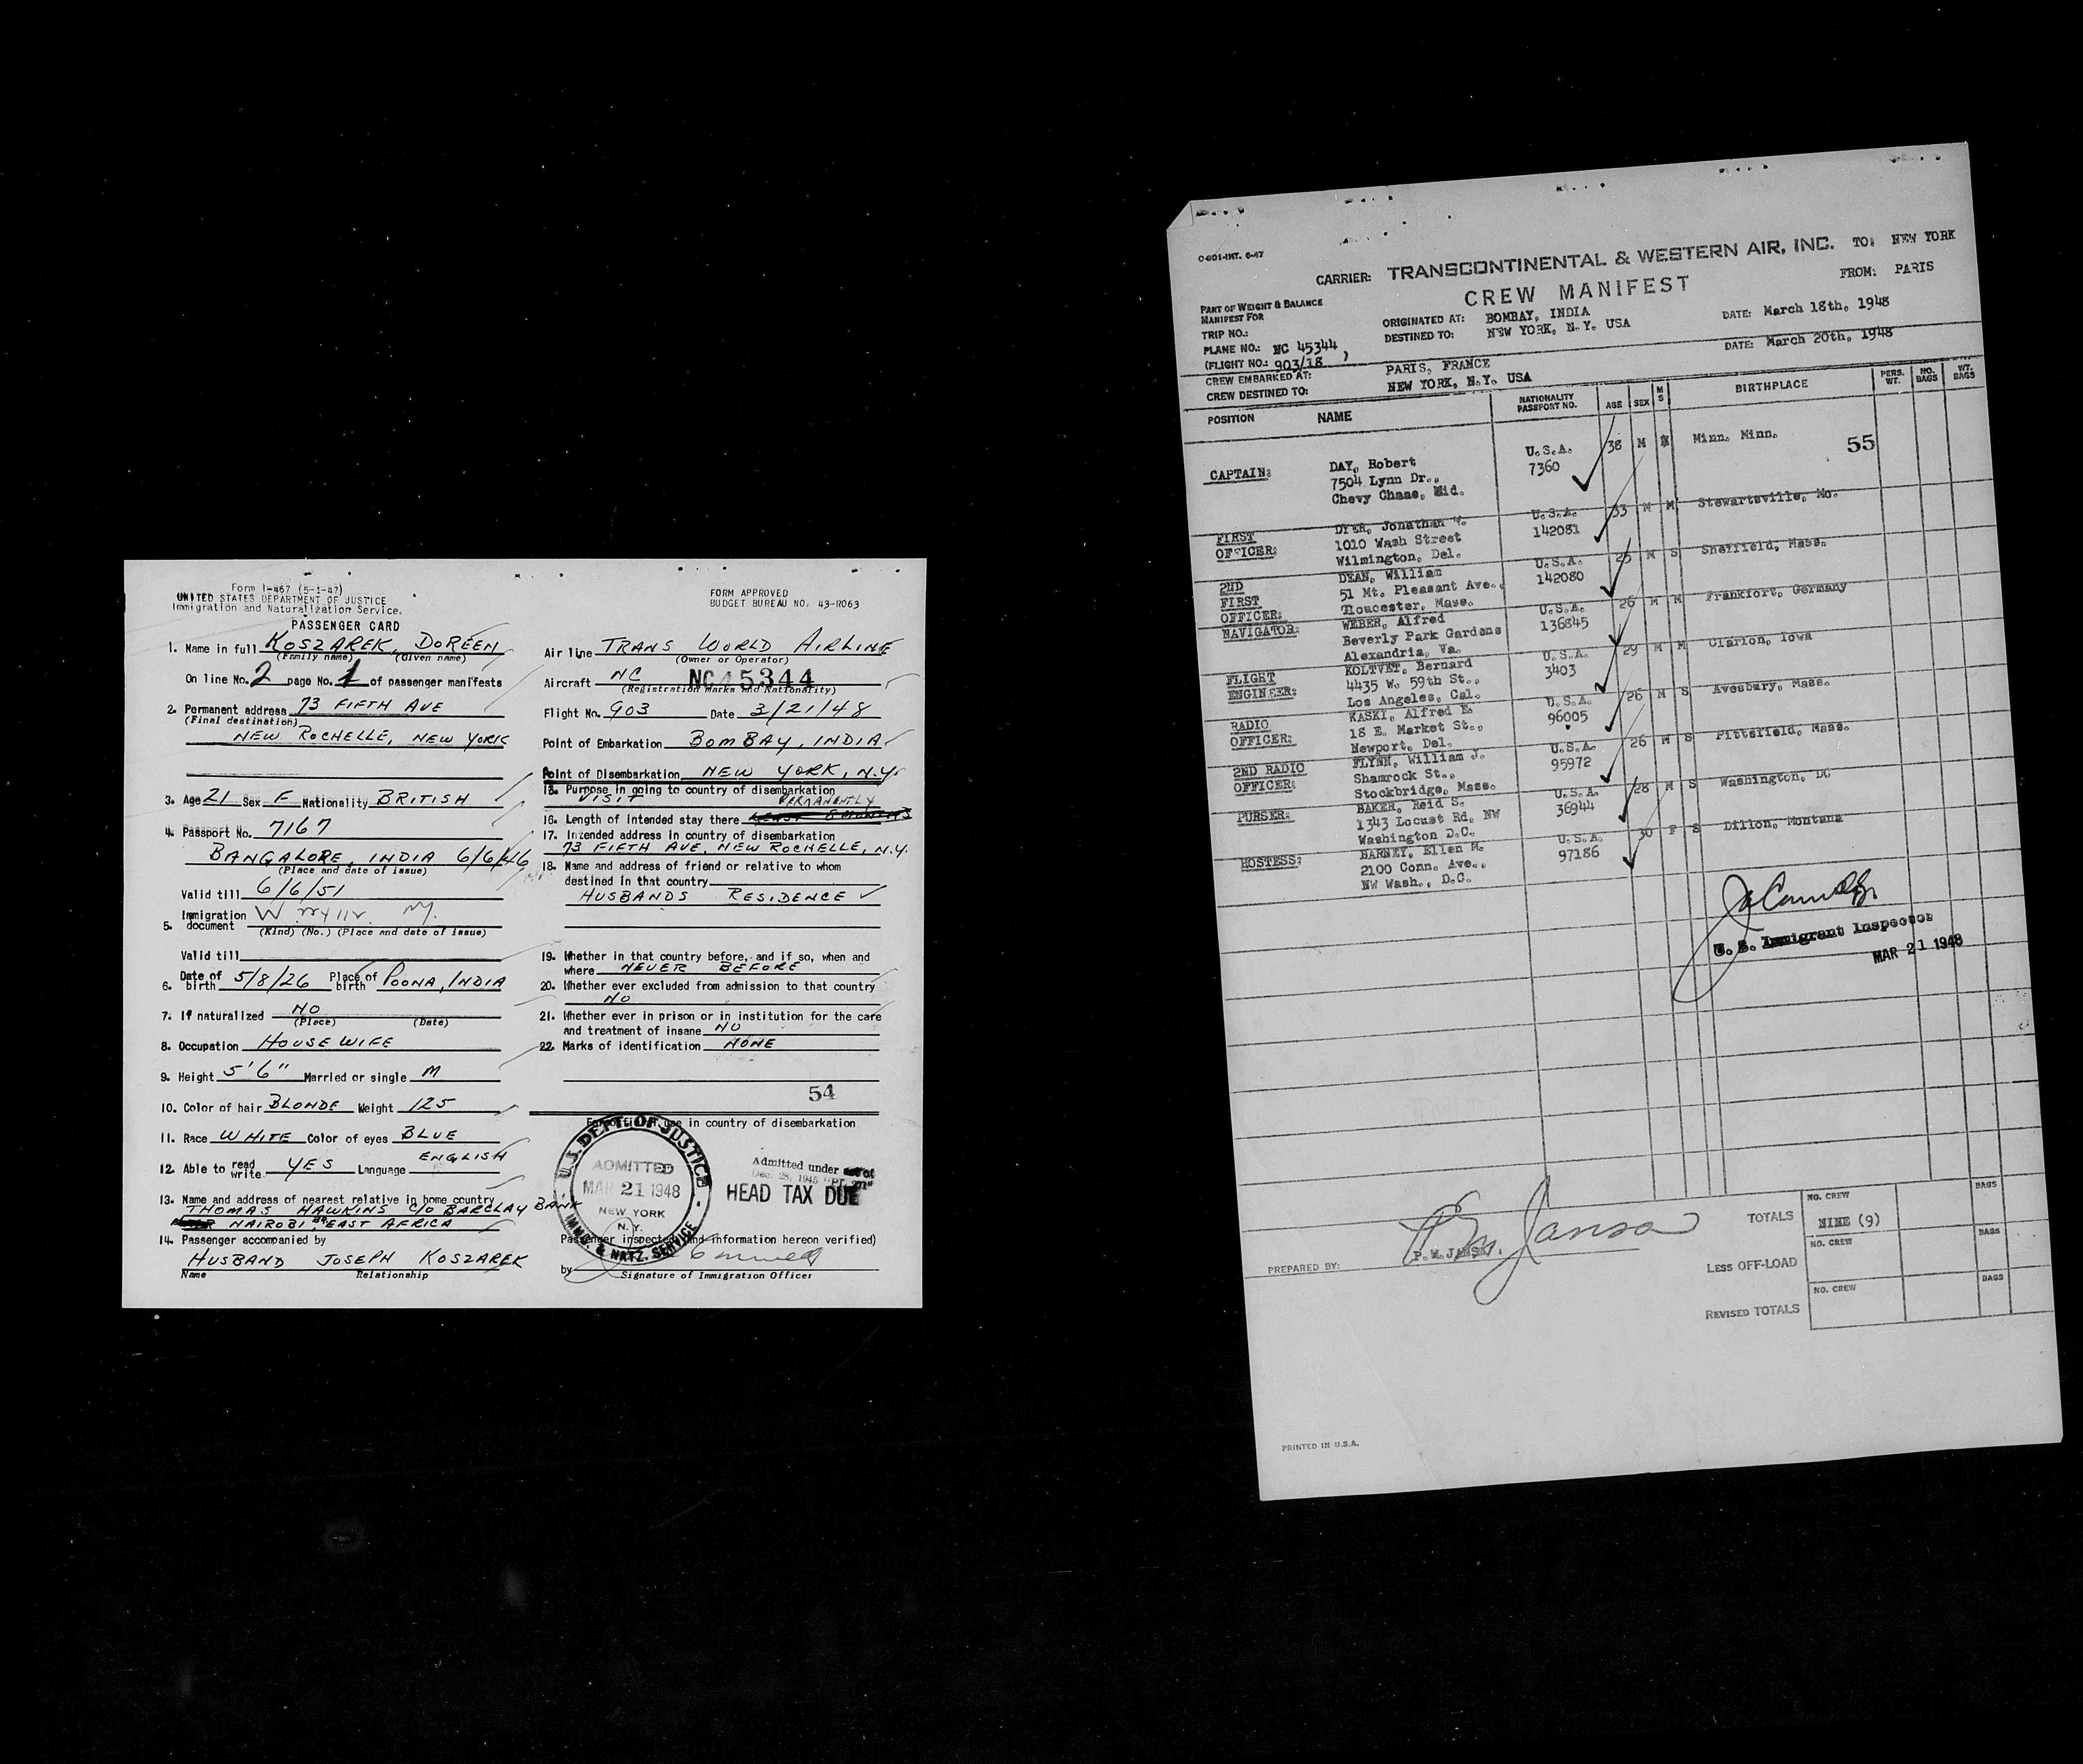 Form I-467 (5-1-47)
UNITED STATES DEPARTMENT OF JUSTICE
Immigration and Naturalization Service.
PASSENGER CARD
FORM APPROVED
BUDGET BUREAU NO. 43-R063
1. Name in full KOSZAREK, DOREEN
(Family name) (Given name)
On line No. 2 page No. 1 of passenger manifests
2. Permanent address 73 FIFTH AVE
(Final destination)
NEW ROCHELLE, NEW YORK
3. Age 21 Sex F Nationality BRITISH
4. Passport No. 7167
BANGALORE, INDIA 6/6/46
(Place and date of issue)
Valid till 6/6/51
5. Immigration document
(Kind) (No.) (Place and date of issue)
Valid till
6. Date of birth 5/8/26 Place of birth POONA, INDIA
7. If naturalized NO
(Place) (Date)
8. Occupation HOUSE WIFE
9. Height 5'6" Married or single M
10. Color of hair BLONDE Weight 125
11. Race WHITE Color of eyes BLUE
12. Able to read write YES Language ENGLISH
13. Name and address of nearest relative in home country
THOMAS HAWKINS C/O BARCLAY BANK
NAIROBI BR EAST AFRICA
14. Passenger accompanied by
HUSBAND JOSEPH KOSZAREK
Name Relationship
Air line TRANS WORLD AIRLINE
(Owner or Operator)
Aircraft NC NC 45344
(Registration marks and Nationality)
Flight No. 903 Date 3/21/48
Point of Embarkation BOMBAY, INDIA
Point of Disembarkation NEW YORK, N.Y.
15. Purpose in going to country of disembarkation
VISIT PERMANENTLY
16. Length of intended stay there
17. Intended address in country of disembarkation
73 FIFTH AVE, NEW ROCHELLE, N.Y.
18. Name and address of friend or relative to whom
destined in that country
HUSBANDS RESIDENCE
19. Whether in that country before, and if so, when and
where NEVER BEFORE
20. Whether ever excluded from admission to that country
NO
21. Whether ever in prison or in institution for the care
and treatment of insane NO
22. Marks of identification NONE
54
For official use in country of disembarkation
U.S. DEPT. OF JUSTICE
ADMITTED
MAR 21 1948
NEW YORK
N.Y.
IMMG. & NATZ. SERVICE
Admitted under Act of
Dec. 28, 1945 "PL 271"
HEAD TAX DUE
Passenger inspected (and information hereon verified)
by
Signature of Immigration Officer
O-601-INT. 6-47
CARRIER: TRANSCONTINENTAL & WESTERN AIR, INC. TO: NEW YORK
CREW MANIFEST FROM: PARIS
PART OF WEIGHT & BALANCE
MANIFEST FOR
TRIP NO.:
PLANE NO.: NC 45344
(FLIGHT NO.: 903/18 )
ORIGINATED AT: BOMBAY, INDIA DATE: March 18th, 1948
DESTINED TO: NEW YORK, N.Y. USA DATE: March 20th, 1948
CREW EMBARKED AT: PARIS, FRANCE
CREW DESTINED TO: NEW YORK, N.Y. USA
POSITION NAME NATIONALITY PASSPORT NO. AGE SEX M S BIRTHPLACE PERS. WT. NO. BAGS WT. BAGS
55
CAPTAIN: DAY, Robert U.S.A. 38 M Minn. Minn.
7504 Lynn Dr., 7360
Chevy Chase, Mid.
FIRST OFFICER: DYER, Jonathan W. U.S.A. 33 M M Stewartsville, Mo.
1010 Wash Street 142081
Wilmington, Del.
2ND FIRST OFFICER: DEAN, William U.S.A. 25 M S Sheffield, Mass.
51 Mt. Pleasant Ave., 142080
Gloucester, Mass.
NAVIGATOR: WEBER, Alfred U.S.A. 26 M M Frankfort, Germany
Beverly Park Gardens 136845
Alexandria, Va.
FLIGHT ENGINEER: KOLTVET, Bernard U.S.A. 29 M M Clarion, Iowa
4435 W. 59th St., 3403
Los Angeles, Cal.
RADIO OFFICER: KASKI, Alfred E. U.S.A. 26 M S Avesbury, Mass.
18 E. Market St., 96005
Newport, Del.
2ND RADIO OFFICER: FLYNN, William J. U.S.A. 26 M S Pittsfield, Mass.
Shamrock St., 95972
Stockbridge, Mass.
PURSER: BAKER, Reid S. U.S.A. 28 M S Washington, DC
1343 Locust Rd, NW 36944
Washington D.C.
HOSTESS: BARNEY, Ellen M. U.S.A. 30 F S Dillon, Montana
2100 Conn. Ave., 97186
NW Wash., D.C.
U. S. Immigrant Inspector
MAR 21 1948
PREPARED BY: P.M. JANSA
TOTALS NO. CREW NINE (9) BAGS
LESS OFF-LOAD NO. CREW BAGS
REVISED TOTALS NO. CREW BAGS
PRINTED IN U.S.A.